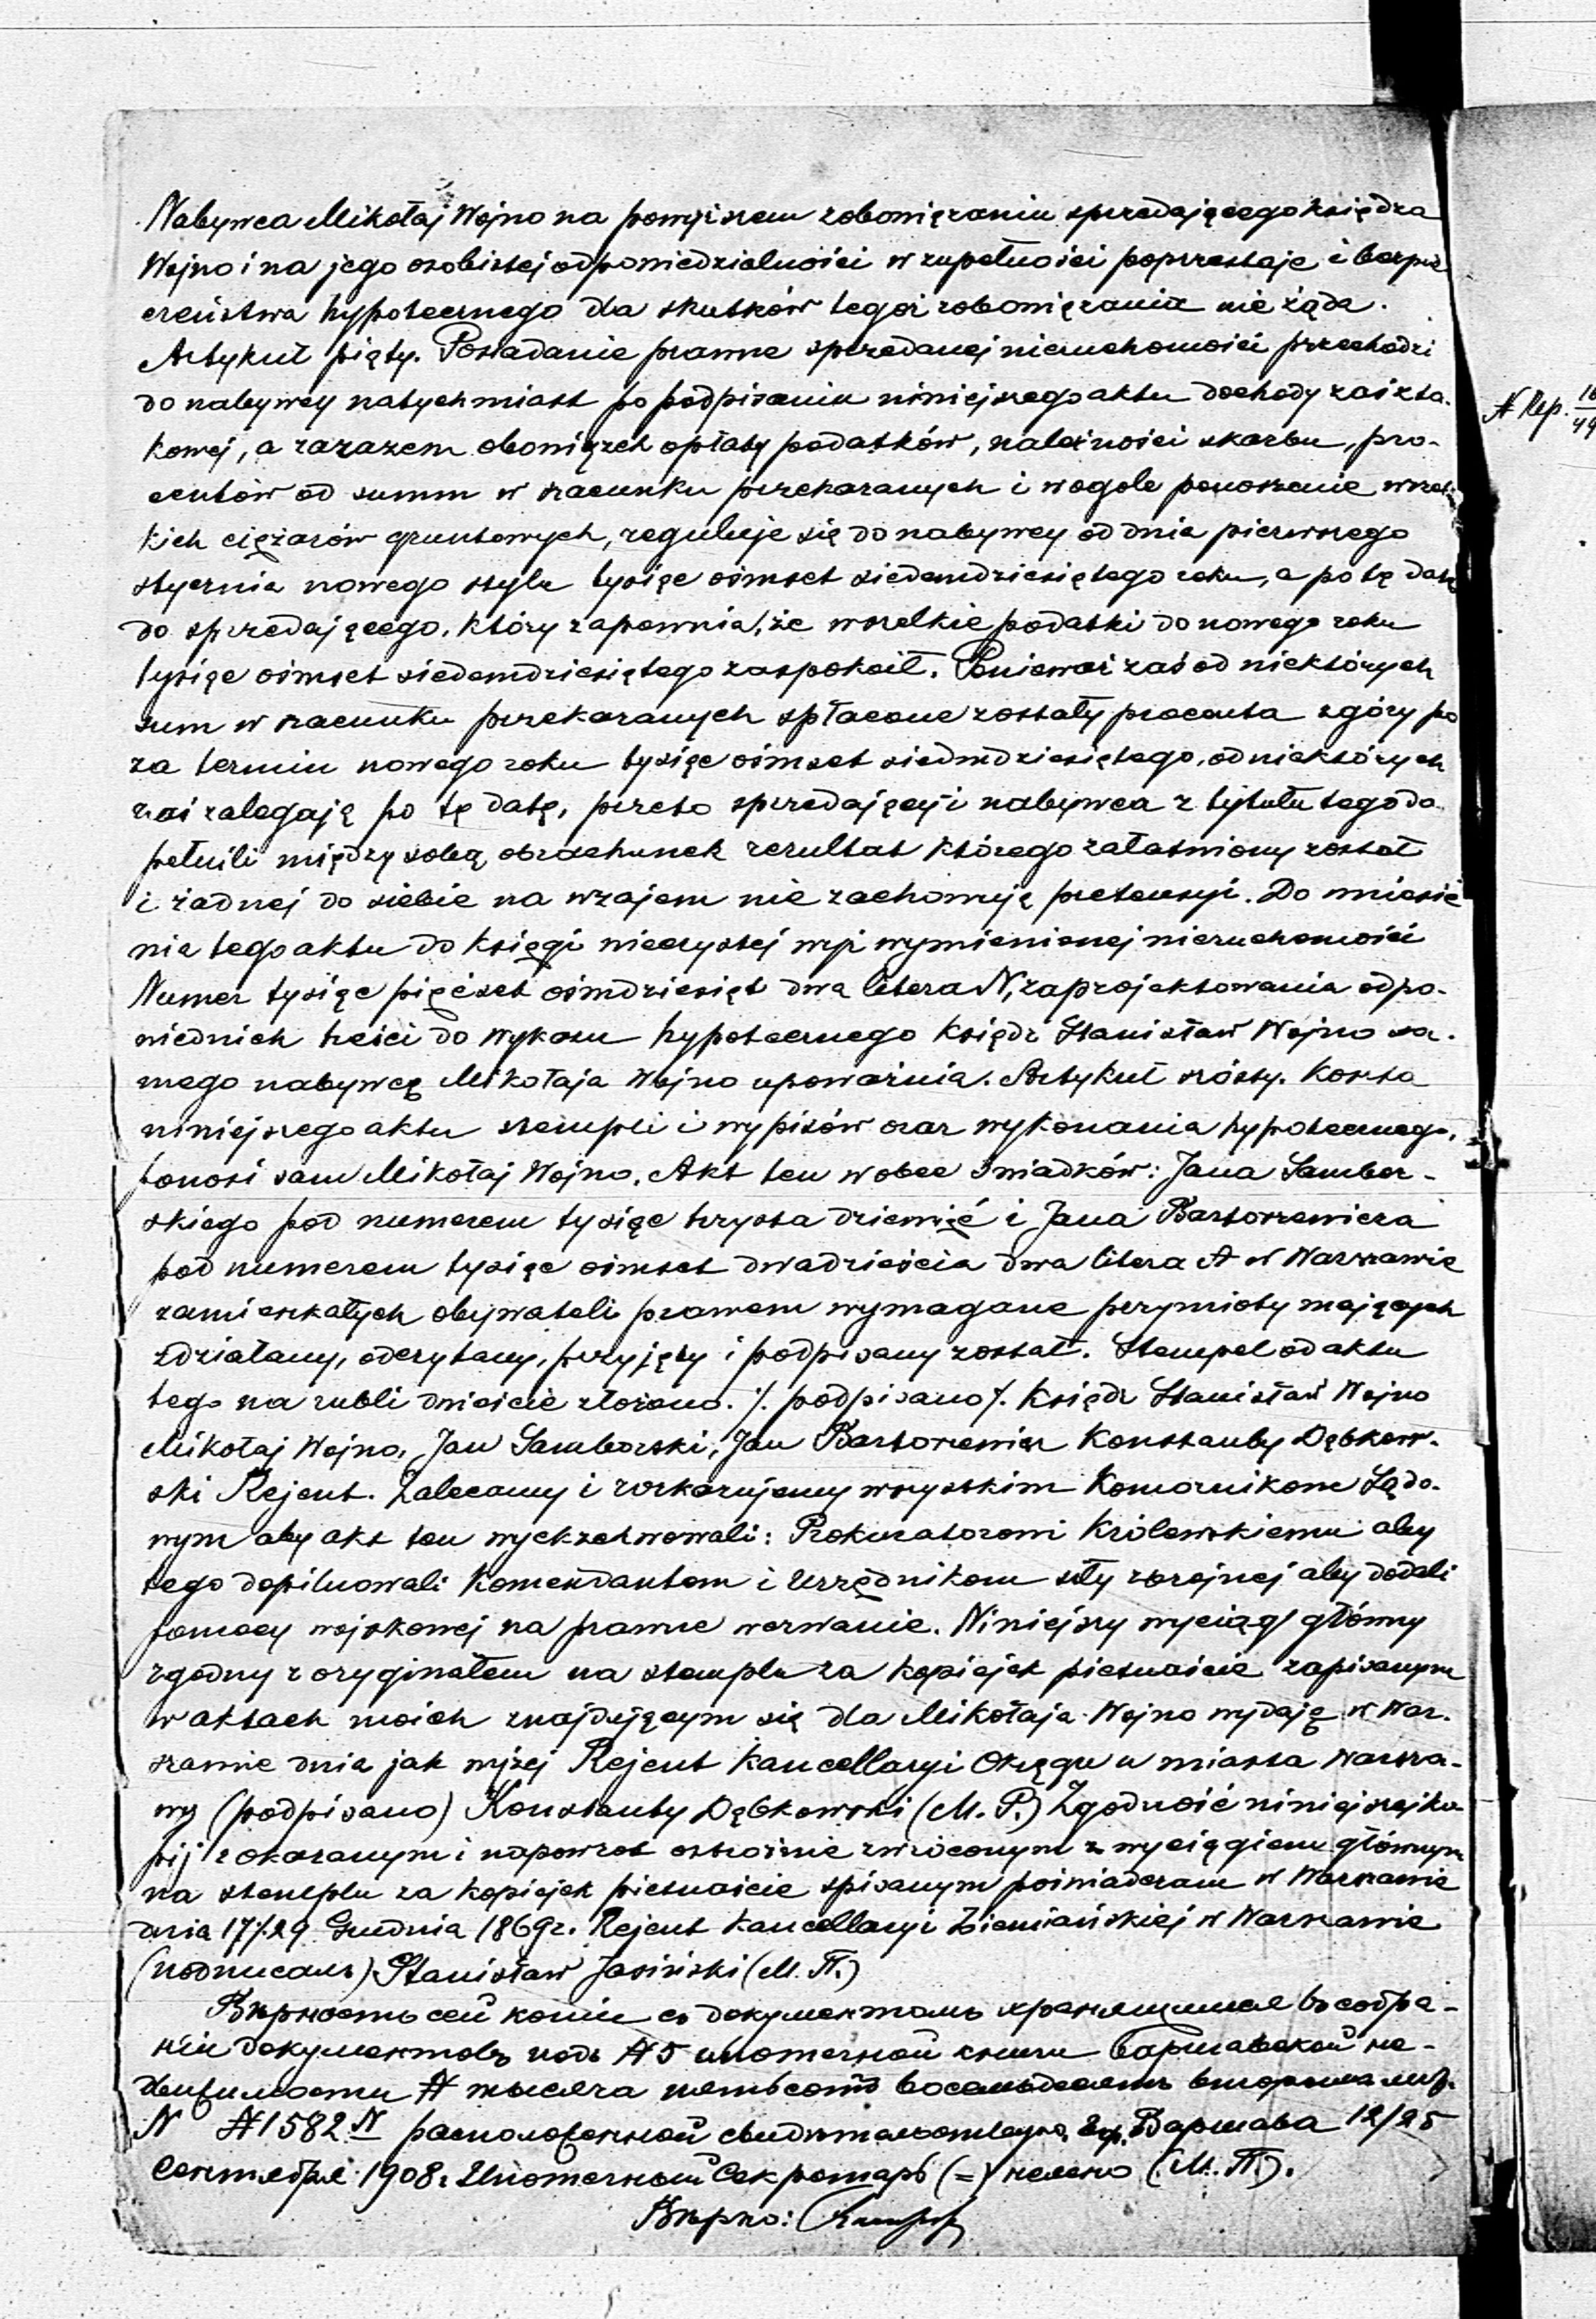 Nabywca Mikołaj Wojno na powyższem zobowięzaniu sprzedającego księdza
Wojno i na jego osobistej odpowiedzialności w zupełności poprzestaje i bezpie
czeństwa hypotecznego dla skutków tegoż zobowięzania nie żąda.
Artykuł piąty. Posiadanie prawne sprzedanej nieruchomości przechodzi
do nabywcy natychmiast po podpisaniu niniejszego aktu dochody zaś z ta-
kowej, a zarazem obowiązek opłaty podatków, należności skarbu, pro-
centów od summ w szacunku przekazanych i wogóle ponoszenie wszel-
kich ciężarów gruntowych, reguluje się do nabywcy od dnia pierwszego
stycznia nowego stylu tysiąc ośmset siedemdziesiętego roku, a po tę datę
do sprzedającego, który zapewnia, że wszelkie podatki do nowego roku
tysiąc ośmset siedemdziesiętego zaspokoił. Ponieważ zaś od niektórych
sum w szacunku przekazanych spłacone zostały procenta zgóry po
za termin nowego roku tysiąc ośmset siedmdziesiętego, od niektórych
zaś zalegają po tę datę, przeto sprzedający i nabywca z tytułu tego do
pełnili między sobą obrachunek rezultat którego załatwiony został
i żadnej do siebie na wzajem nie zachowują pretensyi. Do wniesie
nia tego aktu do księgi wieczystej wyż wymienionej nieruchomości
Numer tysiąc pięćset ośmdziesiąt dwa litera N, zaprojektowania odpo-
wiednich treści do Wykazu hypotecznego Ksiądz Stanisław Wojno sa-
mego nabywcę Mikołaja Wojno upoważnia. Artykuł szósty. Koszta
niniejszego aktu stempli i wypisów oraz wykonania hypotecznego,
ponosi sam Mikołaj Wojno. Akt ten wobec świadków: Jana Sambor-
skiego pod numerem tysiąc trzysta dziewięć i Jana Bartoszewicza
pod numerem tysiąc ośmset dwadzieścia dwa litera A w Warszawie
zamieszkałych obywateli prawem wymagane przymioty mających
zdziałany, odczytany, przyjęty i podpisany został. Stempel od aktu
tego na rubli dwieście złożono. /. podpisano /. Ksiądz Stanisław Wojno
Mikołaj Wojno, Jan Samborski, Jan Bartoszewicz Konstanty Dębkow-
ski Rejent. Zalecamy i rozkazujemy wszystkim Komornikom Sądo-
wym aby akt ten wyekzekwowali: Prokuratorowi Królewskiemu aby
tego dopilnowali Komendantom i Urzędnikom siły zbrojnej aby dodali
pomocy wojskowej na prawne wezwanie. Niniejszy wyciąg główny
zgodny z oryginałem na stemplu za kopiejek pietnaście zapisanym
w aktach moich znajdującym się dla Mikołaja Wojno wydaję w War-
szawie dnia jak wyżej Rejent Kancellaryi Okręgu u miasta Warsza-
wy (podpisano) Konstanty Dębkowski (M. P.) Zgodność niniejszej ko
pij z okazanym i napowrot ostrożnie zwróconym z wyciągiem głównym
na stemplu za kopiejek pietnaście spisanym poświadczam w Warszawie
dnia 17/29 Grudnia 1869 r. Rejent Kancellaryi Ziemiańskiej w Warszawie
(подписалъ) Stanisław Jasiński (М. П.)
Вѣрность сей копіи съ документомъ хранящимся въ собра-
ніи документовъ подъ № 5 ипотечной книги Варшавской не-
движимости № тысяча пятьсотъ восемьдесятъ второй лит.
N № 1582 N расположенной свидѣтельствую, гор. Варшава 12/25
Сентября 1908 г. Ипотечный Секретарь (=) (М. П.).
Вѣрно:
№ Rep.